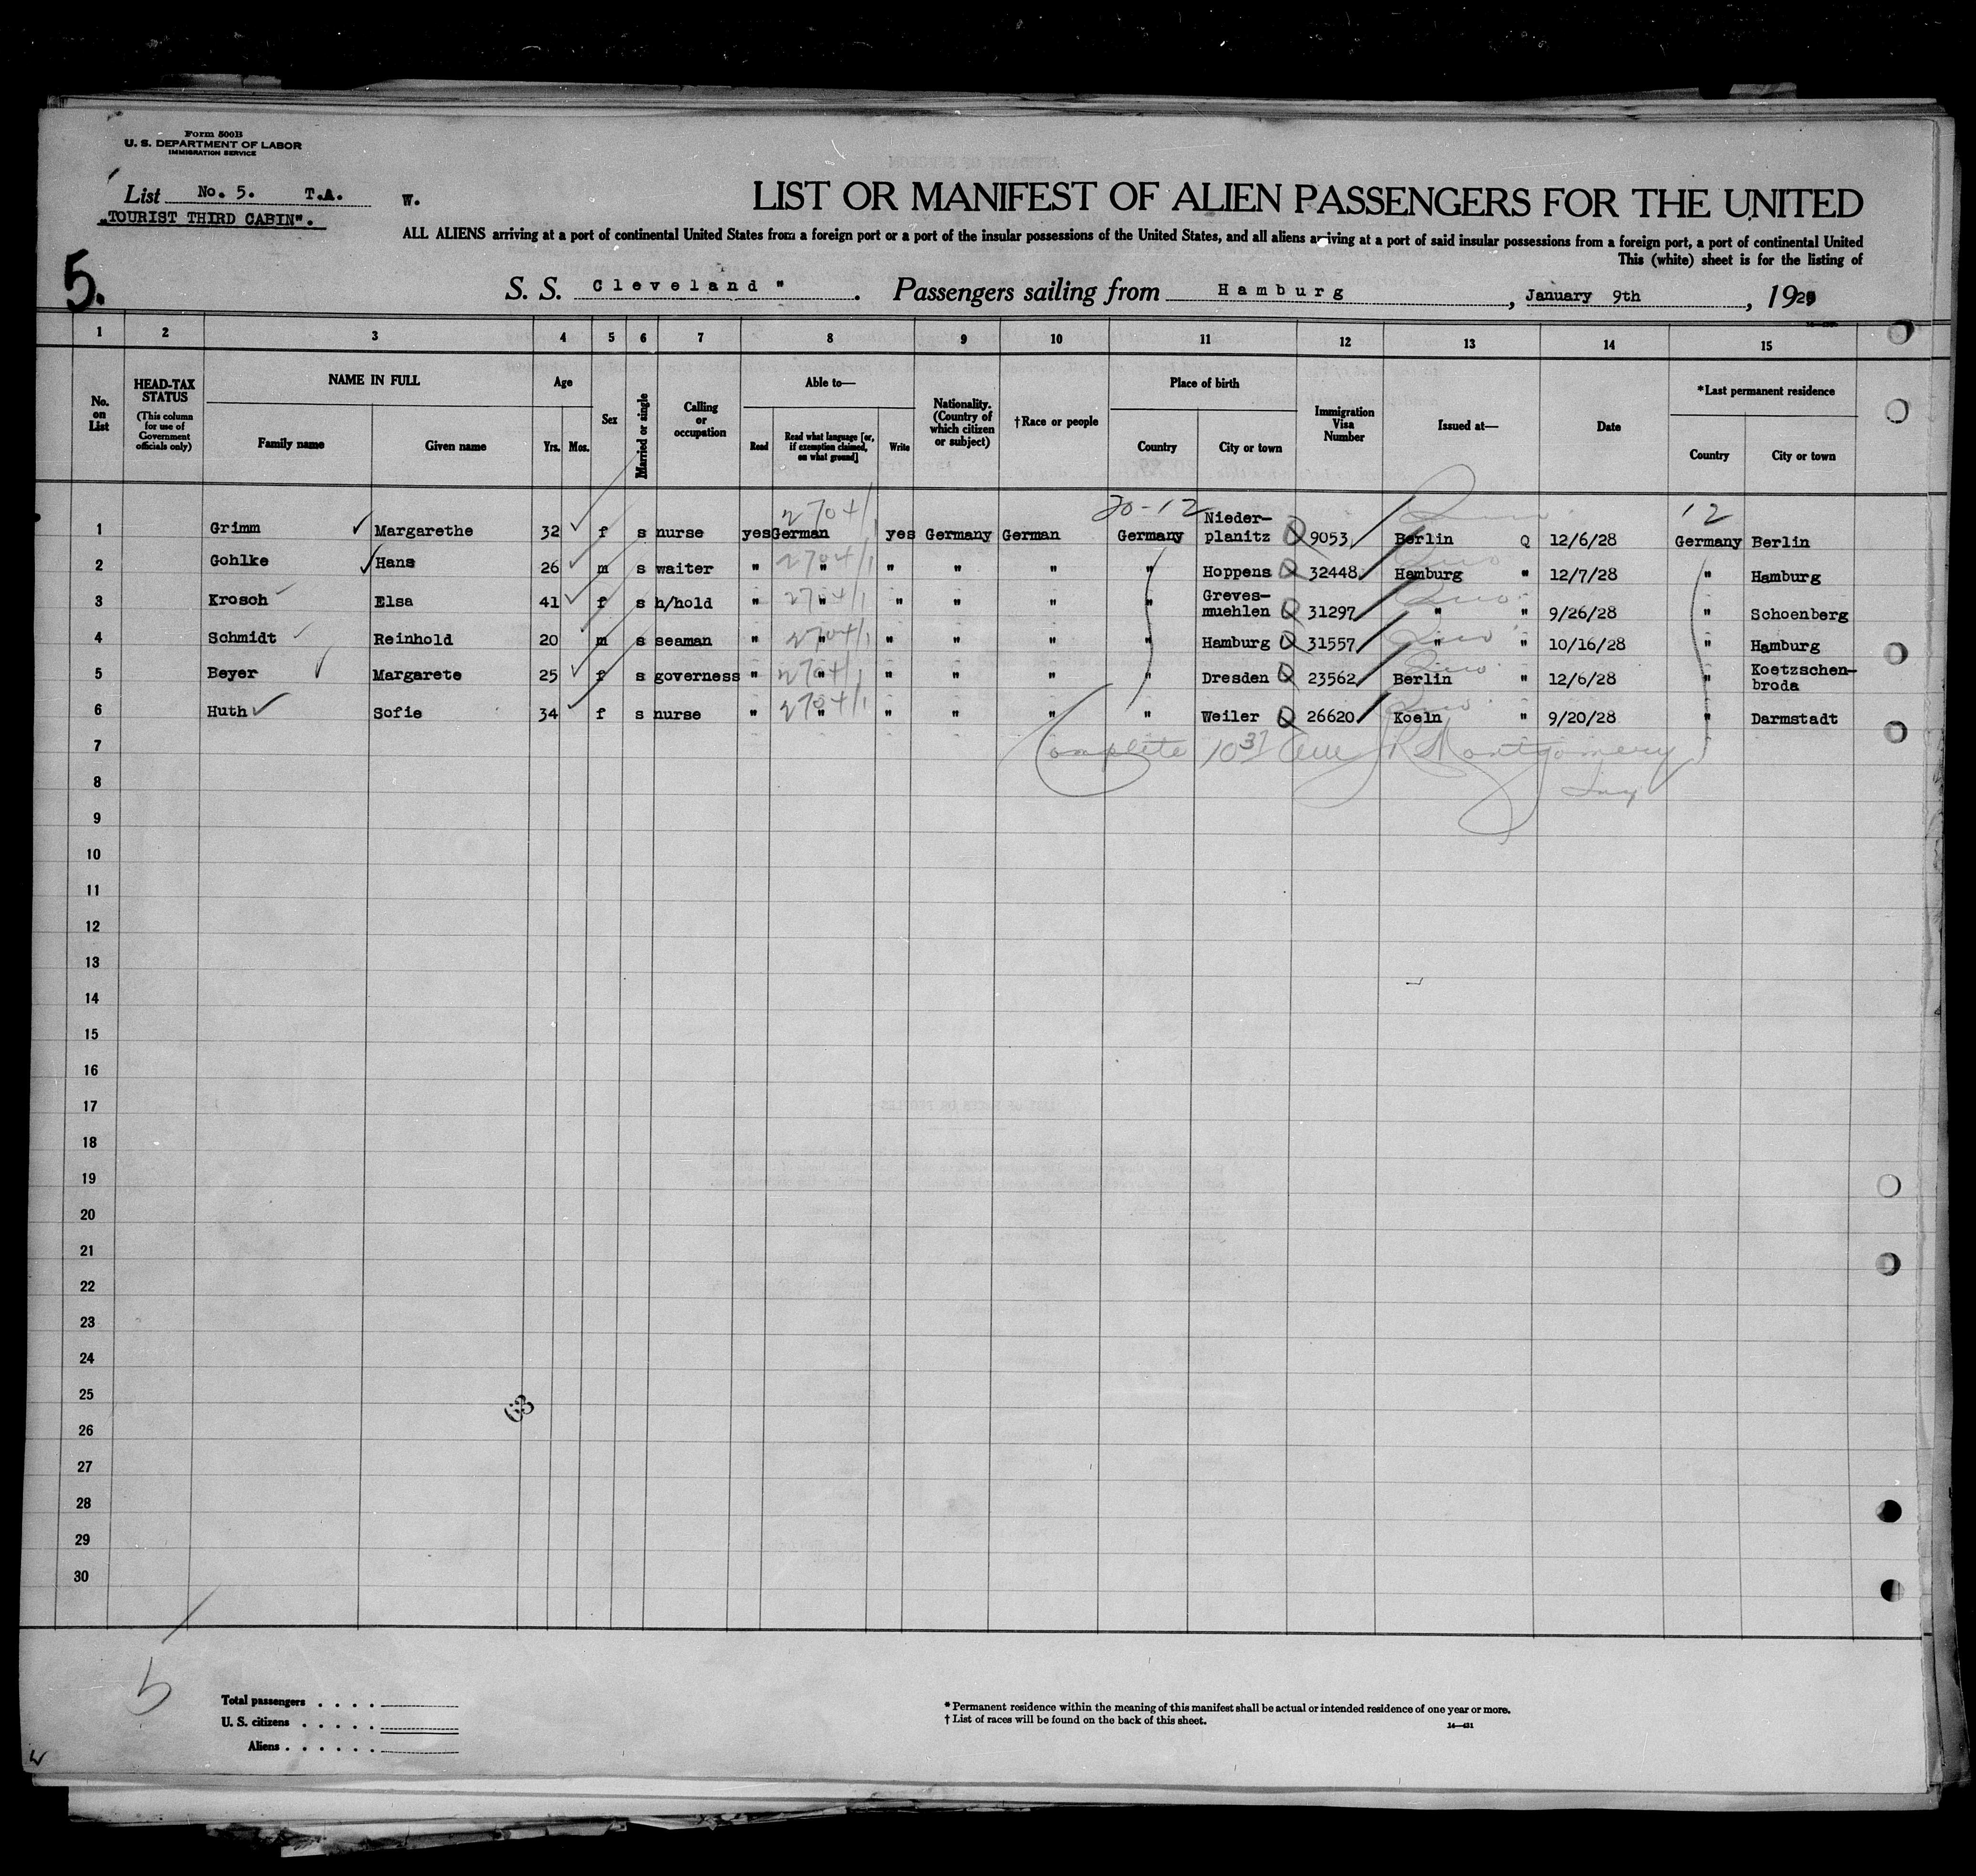 Form 500B
U. S. DEPARTMENT OF LABOR
IMMIGRATION SERVICE
List No. 5. T.A. W.
"TOURIST THIRD CABIN".
5.
LIST OR MANIFEST OF ALIEN PASSENGERS FOR THE UNITED
ALL ALIENS arriving at a port of continental United States from a foreign port or a port of the insular possessions of the United States, and all aliens arriving at a port of said insular possessions from a foreign port, a port of continental United
This (white) sheet is for the listing of
S. S. Cleveland" . Passengers sailing from Hamburg , January 9th , 1929
1 2 3 4 5 6 7 8 9 10 11 12 13 14 15
No. on List
HEAD-TAX STATUS
(This column for use of Government officials only)
NAME IN FULL
Family name Given name
Age
Yrs. Mos.
Sex
Married or single
Calling or occupation
Able to—
Read
Read what language [or, if exemption claimed, on what ground]
Write
Nationality. (Country of which citizen or subject)
†Race or people
Place of birth
Country City or town
Immigration Visa Number
Issued at—
Date
*Last permanent residence
Country City or town
2704/1 20-12 12
1 Grimm Margarethe 32 f s nurse yes German yes Germany German Germany Nieder-planitz Q 9053 Berlin Q 12/6/28 Germany Berlin
2 Gohlke Hans 26 m s waiter " 2704/1 " " " " " Hoppens Q 32448 Hamburg " 12/7/28 " Hamburg
3 Krosch Elsa 41 f s h/hold " 2704/1 " " " " " Greves-muehlen Q 31297 " " 9/26/28 " Schoenberg
4 Schmidt Reinhold 20 m s seaman " 2704/1 " " " " " Hamburg Q 31557 " " 10/16/28 " Hamburg
5 Beyer Margarete 25 f s governess " 2704/1 " " " " " Dresden Q 23562 Berlin " 12/6/28 " Koetzschen-broda
6 Huth Sofie 34 f s nurse " 2704/1 " " " " " Weiler Q 26620 Koeln " 9/20/28 " Darmstadt
7 Complete 10 37 Montgomery
8
9
10
11
12
13
14
15
16
17
18
19
20
21
22
23
24
25
63
26
27
28
29
30
5
Total passengers . . . .
U. S. citizens . . . . .
Aliens . . . . . .
* Permanent residence within the meaning of this manifest shall be actual or intended residence of one year or more.
† List of races will be found on the back of this sheet.
14—431
W